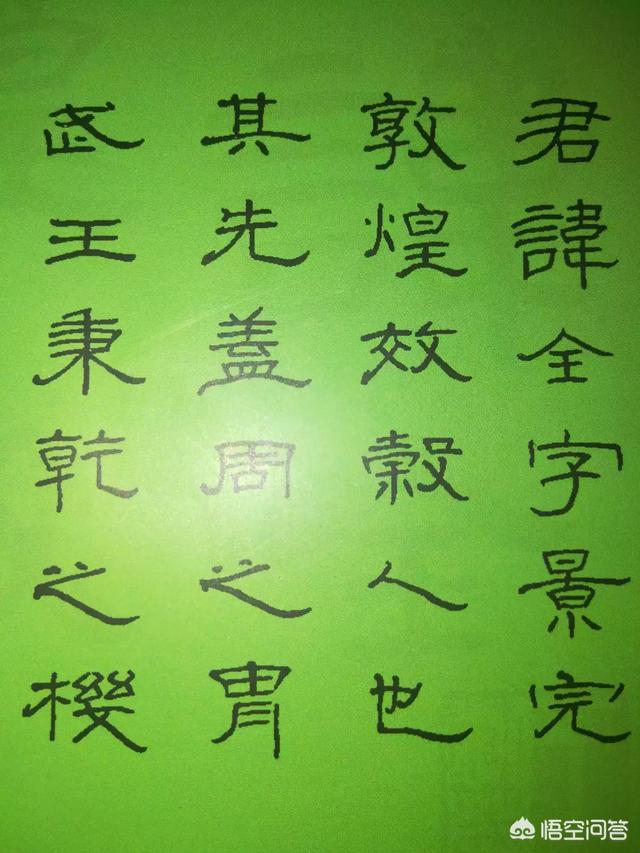 君諱全字景完
敦煌效穀人也
其先蓋周之胄
武王秉乾之機
悟空问答